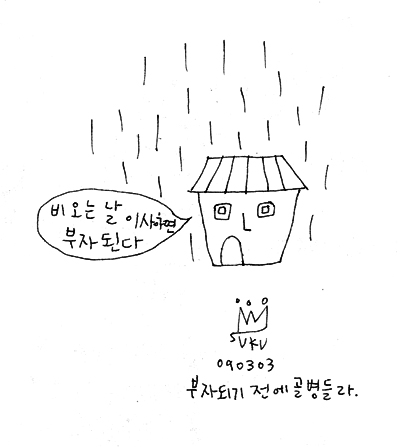 비 오는 날 이사하면
부자 된다
SVKV
090303
부자되기 전에 골병들라.